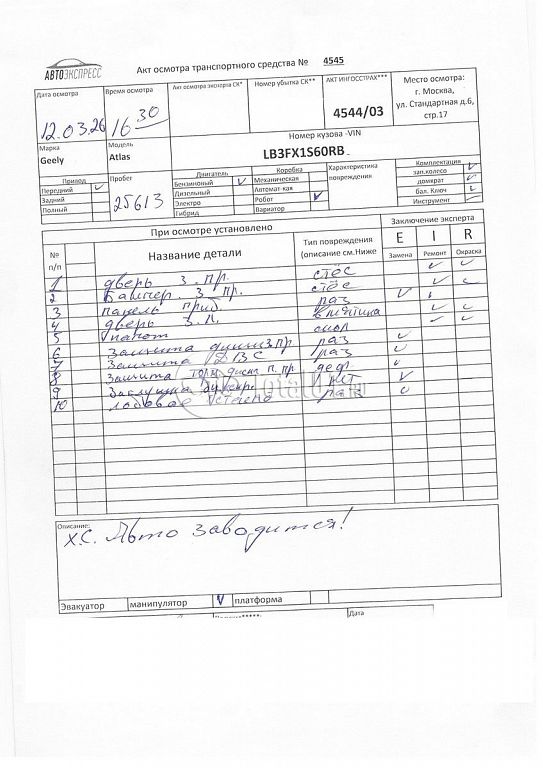 АВТОЭКСПРЕСС
Акт осмотра транспортного средства № 4545
Дата осмотра
12.03.26
Время осмотра
16 30
Акт осмотра эксперта СК*
Номер убытка СК**
АКТ ИНГОССТРАХ***
4544/03
Место осмотра:
г. Москва,
ул. Стандартная д.6,
стр.17
Марка
Geely
Модель
Atlas
Номер кузова -VIN
LB3FX1S60RB
Привод
Передний V
Задний
Полный
Пробег
25613
Двигатель
Бензиновый V
Дизельный
Электро
Гибрид
Коробка
Механическая
Автомат кая
Робот V
Вариатор
Характеристика
повреждения
Комплектация
зап.колесо V
домкрат V
бал. Ключ V
Инструмент V
При осмотре установлено
Заключение эксперта
№ п/п
Название детали
Тип повреждения
(описание см.Ниже
E I R
Замена Ремонт Окраска
1 дверь З. пр. стёс
2 Бампер З. пр. стёс
3 панель приб. раз
4 дверь З.Л. вмятина
5 капот скол
6 Защита раз
7 Защита ДВС раз
8 Защита диска п. пр.
9 Заглушка
10 Лобовое стекло раз
Описание:
Х.С. Авто заводится!
Эвакуатор манипулятор V платформа
Дата